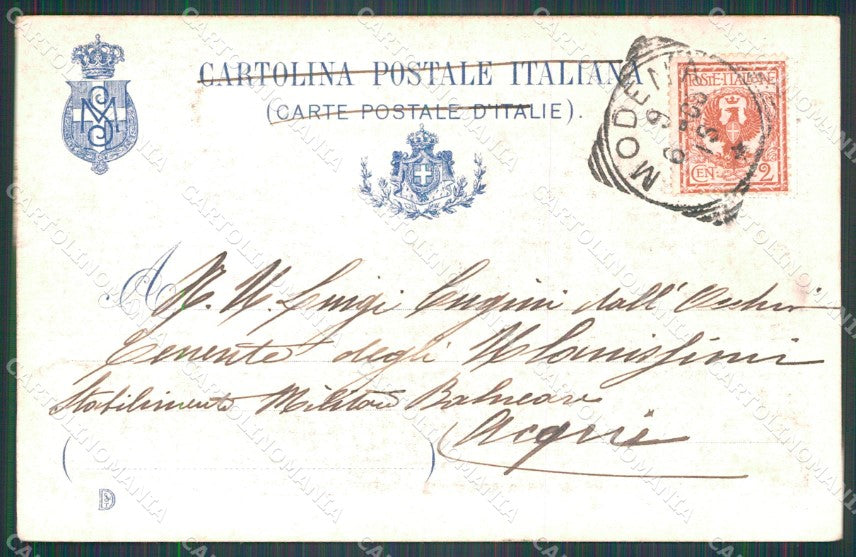 CARTOLINA POSTALE ITALIANA
(CARTE POSTALE D'ITALIE).
MODENA
POSTE·ITALIANE
CEN. 2
A N. U. Luigi Cugini dall'
Tenente degli
Stabilimento Militare Balneare
Acqui
CARTOLINOMANIA